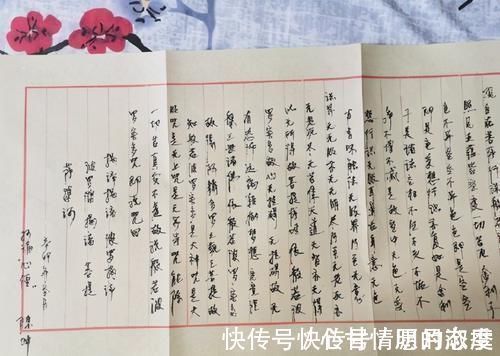 照见五蕴皆空度一切苦厄舍利子
色不异空空不异色色即是空空
即是色受想行识亦复如是舍利
子是诸法空相不生不灭不垢不
净不增不减是故空中无色无受
想行识无眼耳鼻舌身意无色
声香味触法无眼界乃至无意
识界无无明亦无无明尽乃至无老死亦
无老死尽无苦集灭道无智亦无得
以无所得故菩提萨埵依般若波
罗蜜多故心无挂碍无挂碍故无
有恐怖远离颠倒梦想究竟涅
槃三世诸佛依般若波罗蜜多
故得阿耨多罗三藐三菩提故
知般若波罗蜜多是大神咒是大
明咒是无上咒是无等等咒能除
一切苦真实不虚故说般若波
罗蜜多咒即说咒曰
揭谛揭谛 波罗揭谛
波罗僧揭谛 菩提
萨婆诃
辛卯年
心经 陈坤
快传号